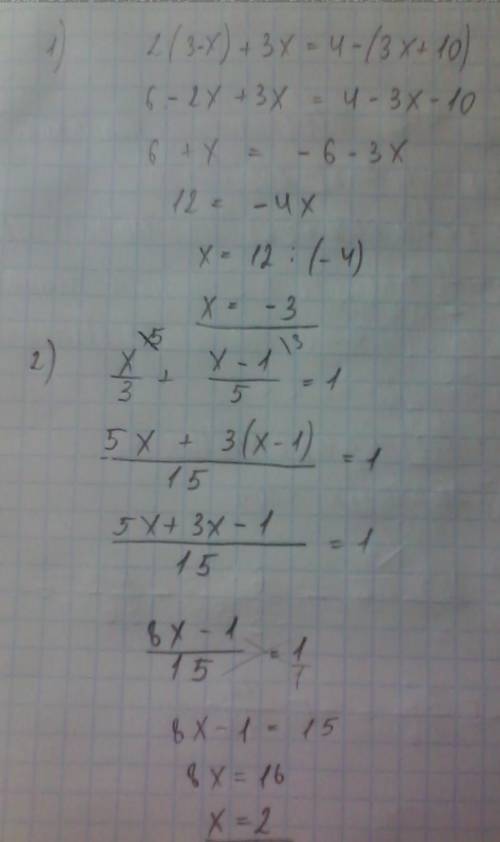 1) 2(3-x)+3x=4-(3x+10)
6-2x+3x = 4-3x-10
6+x = -6-3x
12 = -4x
x = 12 : (-4)
x = -3
2) x\5/3 + x-1\3/5 = 1
5x + 3(x-1)/15 = 1
5x+3x-1/15 = 1
8x-1/15 = 1/1
8x-1 = 15
8x = 16
x = 2